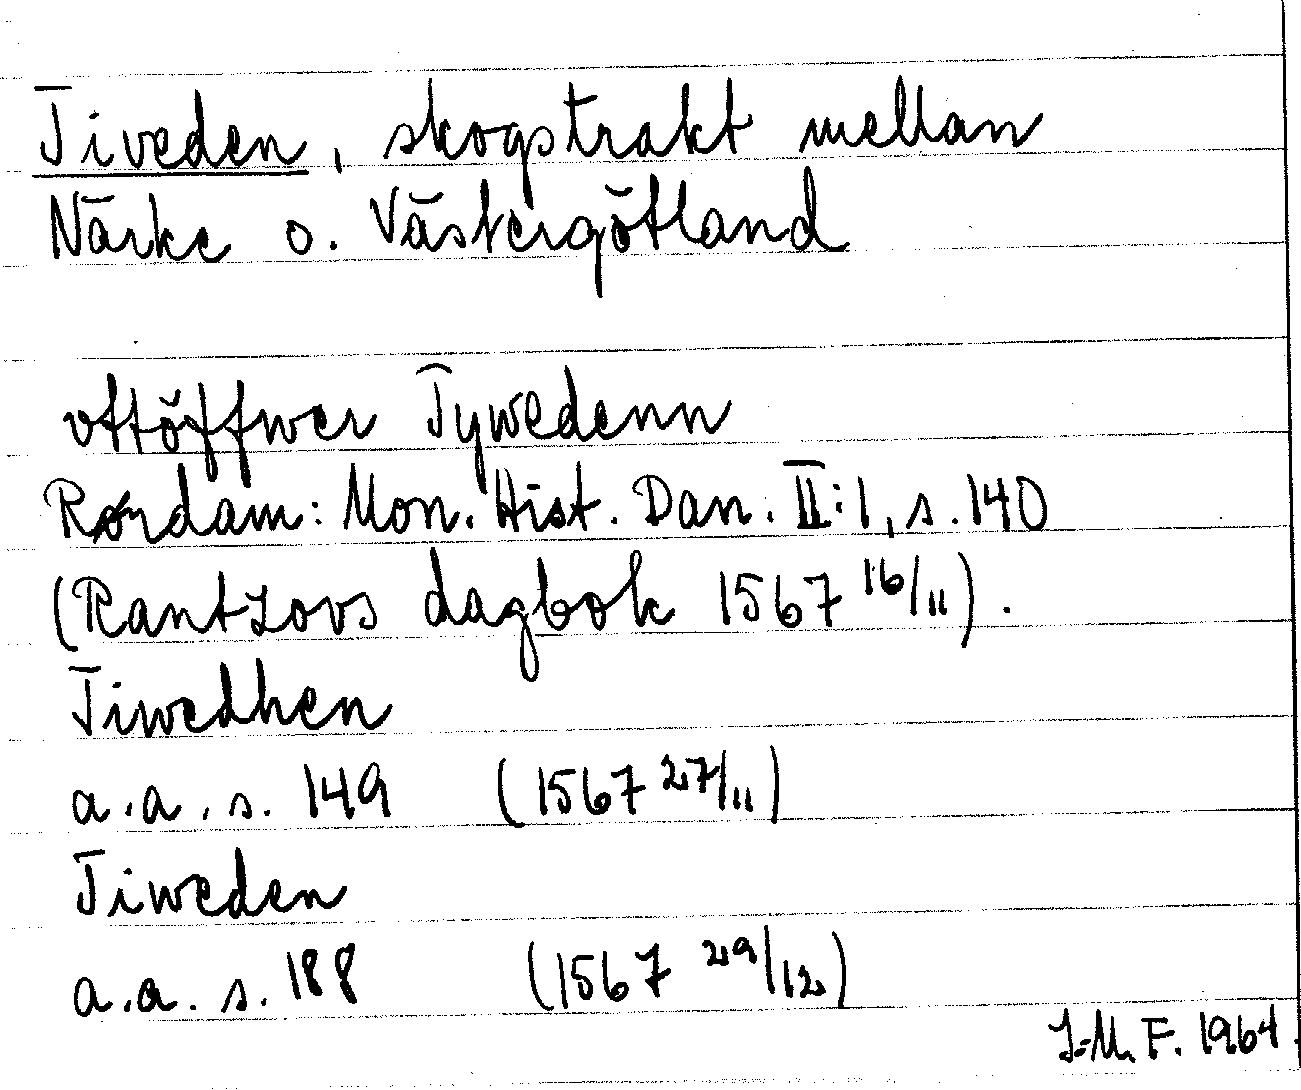 Tiveden, skogstrakt mellan
Närke o. Västergötland
vttöffwer Tywedenn
Rørdam: Mon. Hist. Dan. II:1, s. 140
(Rantzovs dagbok 1567 16/11).
Tiwedhen
a.a. s. 149 (1567 27/11)
Tiweden
a.a. s. 188 (1567 29/12)
I-M. F. 1964.